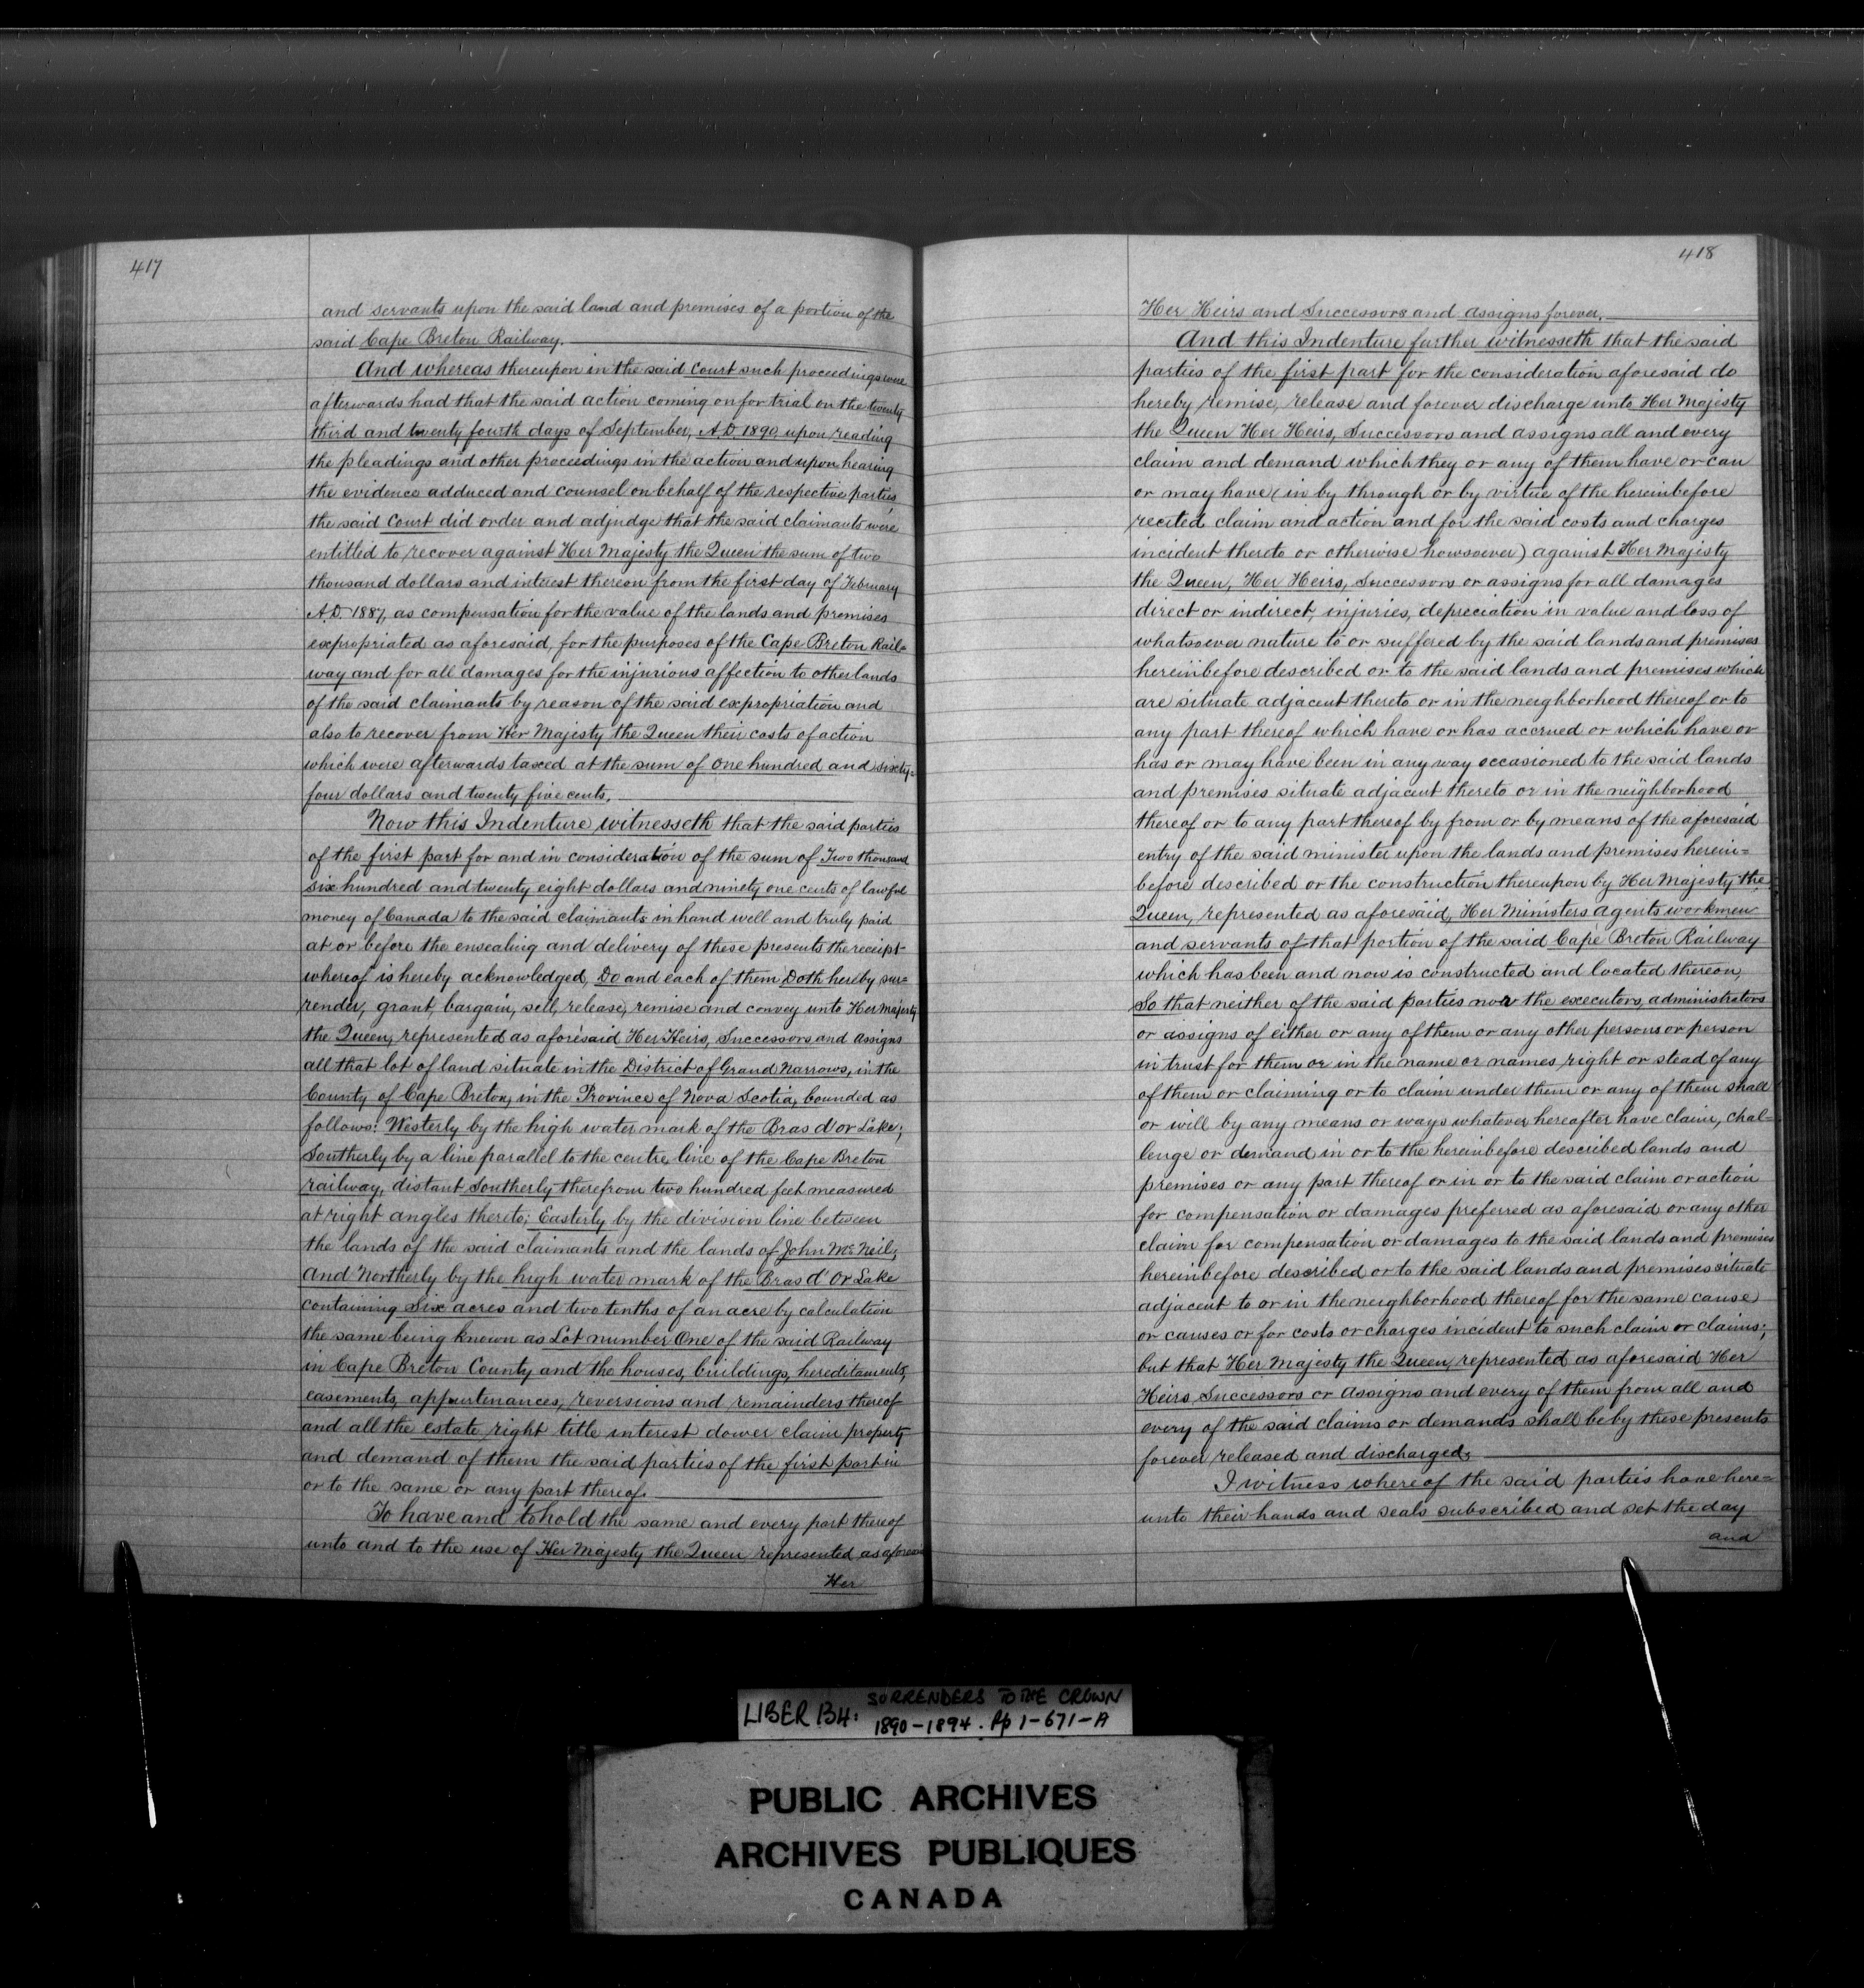 417
and servants upon the said land and premises of a portion of the
said Cape Breton Railway.
And whereas thereupon in the said Court such proceedings were
afterwards had that the said action coming on for trial on the twenty
third and twenty fourth days of September, A.D. 1890, upon reading
the pleadings and other proceedings in the action and upon hearing
the evidence adduced and counsel on behalf of the respective parties
the said Court did order and adjudge that the said claimants were
entitled to recover against Her Majesty the Queen the sum of two
thousand dollars and interest thereon from the first day of February
A.D. 1887, as compensation for the value of the lands and premises
expropriated as aforesaid, for the purposes of the Cape Breton Rail=
way and for all damages for the injurious affection to other lands
of the said claimants by reason of the said expropriation and
also to recover from Her Majesty the Queen their costs of action
which were afterwards taxed at the sum of one hundred and sixty=
four dollars and twenty five cents.
Now this Indenture witnesseth that the said parties
of the first part for and in consideration of the sum of Two thousand
six hundred and twenty eight dollars and ninety one cents of lawful
money of Canada to the said claimants in hand well and truly paid
at or before the ensealing and delivery of these presents the receipt
whereof is hereby acknowledged, Do and each of them Doth hereby sur=
render, grant, bargain, sell, release, remise and convey unto Her Majesty
the Queen, represented as aforesaid Her Heirs, Successors and Assigns
all that lot of land situate in the District of Grand Narrows, in the
County of Cape Breton, in the Province of Nova Scotia, bounded as
follows: Westerly by the high water mark of the Bras d'or Lake;
Southerly by a line parallel to the centre line of the Cape Breton
railway, distant Southerly therefrom two hundred feet measured
at right angles thereto; Easterly by the division line between
the lands of the said claimants and the lands of John McNeil;
and Northerly by the high water mark of the Bras d'Or Lake
containing Six acres and two tenths of an acre by calculation
the same being known as Lot number One of the said Railway
in Cape Breton County and the houses, buildings, hereditaments,
easements, appurtenances, reversions and remainders thereof
and all the estate right title interest dower claim property
and demand of them the said parties of the first part in
or to the same or any part thereof.
To have and to hold the same and every part thereof
unto and to the use of Her Majesty the Queen represented as aforesaid
Her
418
Her Heirs and Successors and assigns forever.
And this Indenture further witnesseth that the said
parties of the first part for the consideration aforesaid do
hereby remise, release and forever discharge unto Her Majesty
the Queen Her Heirs, Successors and assigns all and every
claim and demand which they or any of them have or can
or may have (in by through or by virtue of the hereinbefore
recited claim and action and for the said costs and charges
incident thereto or otherwise howsoever) against Her Majesty
the Queen, Her Heirs, Successors or assigns for all damages
direct or indirect, injuries, depreciation in value and loss of
whatsoever nature to or suffered by the said lands and premises
hereinbefore described or to the said lands and premises which
are situate adjacent thereto or in the neighborhood thereof or to
any part thereof which have or has accrued or which have or
has or may have been in any way occasioned to the said lands
and premises situate adjacent thereto or in the neighborhood
thereof or to any part thereof by from or by means of the aforesaid
entry of the said minister upon the lands and premises herein=
before described or the construction thereupon by Her Majesty the
Queen, represented as aforesaid, Her Ministers agents workmen
and servants of that portion of the said Cape Breton Railway
which has been and now is constructed and located thereon,
So that neither of the said parties nor the executors, administrators
or assigns of either or any of them or any other persons or person
in trust for them or in the name or names right or stead of any
of them or claiming or to claim under them or any of them shall
or will by any means or ways whatever hereafter have claim, chal=
lenge or demand in or to the hereinbefore described lands and
premises or any part thereof or in or to the said claim or action
for compensation or damages preferred as aforesaid or any other
claim for compensation or damages to the said lands and premises
hereinbefore described or to the said lands and premises situate
adjacent to or in the neighborhood thereof for the same cause
or causes or for costs or charges incident to such claim or claims;
but that Her Majesty the Queen, represented as aforesaid Her
Heirs Successors or Assigns and every of them from all and
every of the said claims or demands shall be by these presents
forever released and discharged.
I witness whereof the said parties have here=
unto their hands and seals subscribed and set the day
and
LIBER B4: SURRENDERS TO THE CROWN
1890-1894. Pp 1-671-A
PUBLIC ARCHIVES
ARCHIVES PUBLIQUES
CANADA